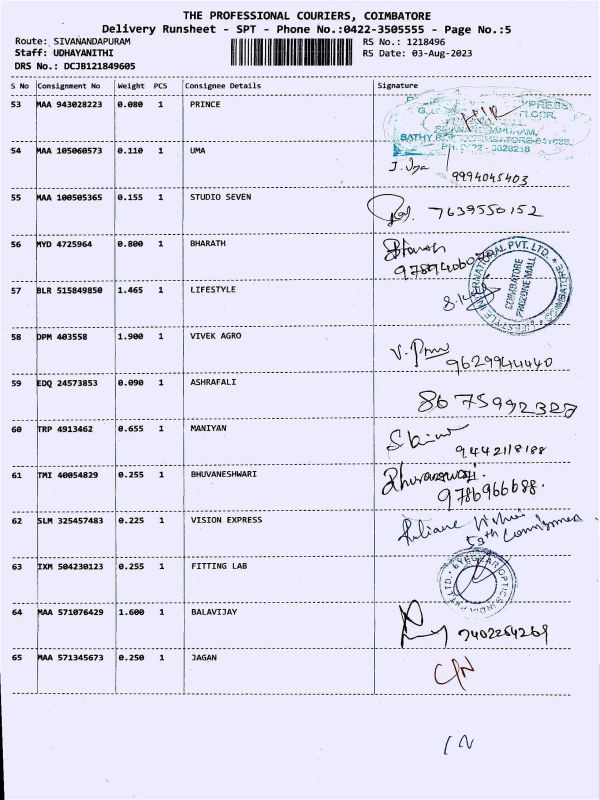 THE PROFESSIONAL COURIERS, COIMBATORE
Delivery Runsheet - SPT - Phone No.:0422-3505555 - Page No.:5
Route: SIVANANDAPURAM RS No.: 1218496
Staff: UDHAYANITHI RS Date: 03-Aug-2023
DRS No.: DCJB121849605
S No Consignment No Weight PCS Consignee Details Signature
53 MAA 943028223 0.080 1 PRINCE
54 MAA 105060573 0.110 1 UMA
9994045403
55 MAA 100505365 0.155 1 STUDIO SEVEN
7639550152
56 MYD 4725964 0.800 1 BHARATH
57 BLR 515849850 1.465 1 LIFESTYLE
LIFESTYLE INTERNATIONAL PVT. LTD. * COIMBATORE
COIMBATORE
PROZONE MALL
58 DPM 403558 1.900 1 VIVEK AGRO
9629944440
59 EDQ 24573853 0.090 1 ASHRAFALI
8675992327
60 TRP 4913462 0.655 1 MANIYAN
9442118188
61 TMI 40054829 0.255 1 BHUVANESHWARI
Bhuvaneswari.
9786966688.
62 SLM 325457483 0.225 1 VISION EXPRESS
63 IXM 504230123 0.255 1 FITTING LAB
64 MAA 571076429 1.600 1 BALAVIJAY
7402264269
65 MAA 571345673 0.250 1 JAGAN
C/N